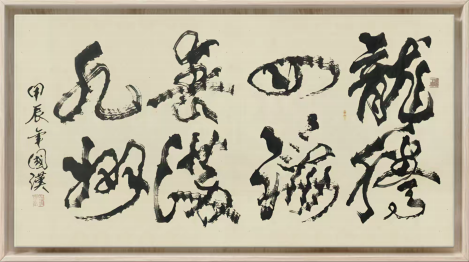 龍騰
四海
春滿
九州
甲辰年國漢